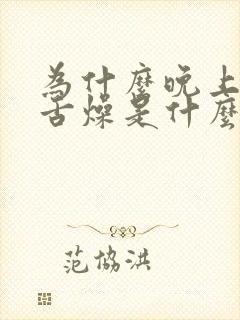 为什麼晚上
舌燥是什麼
范協洪